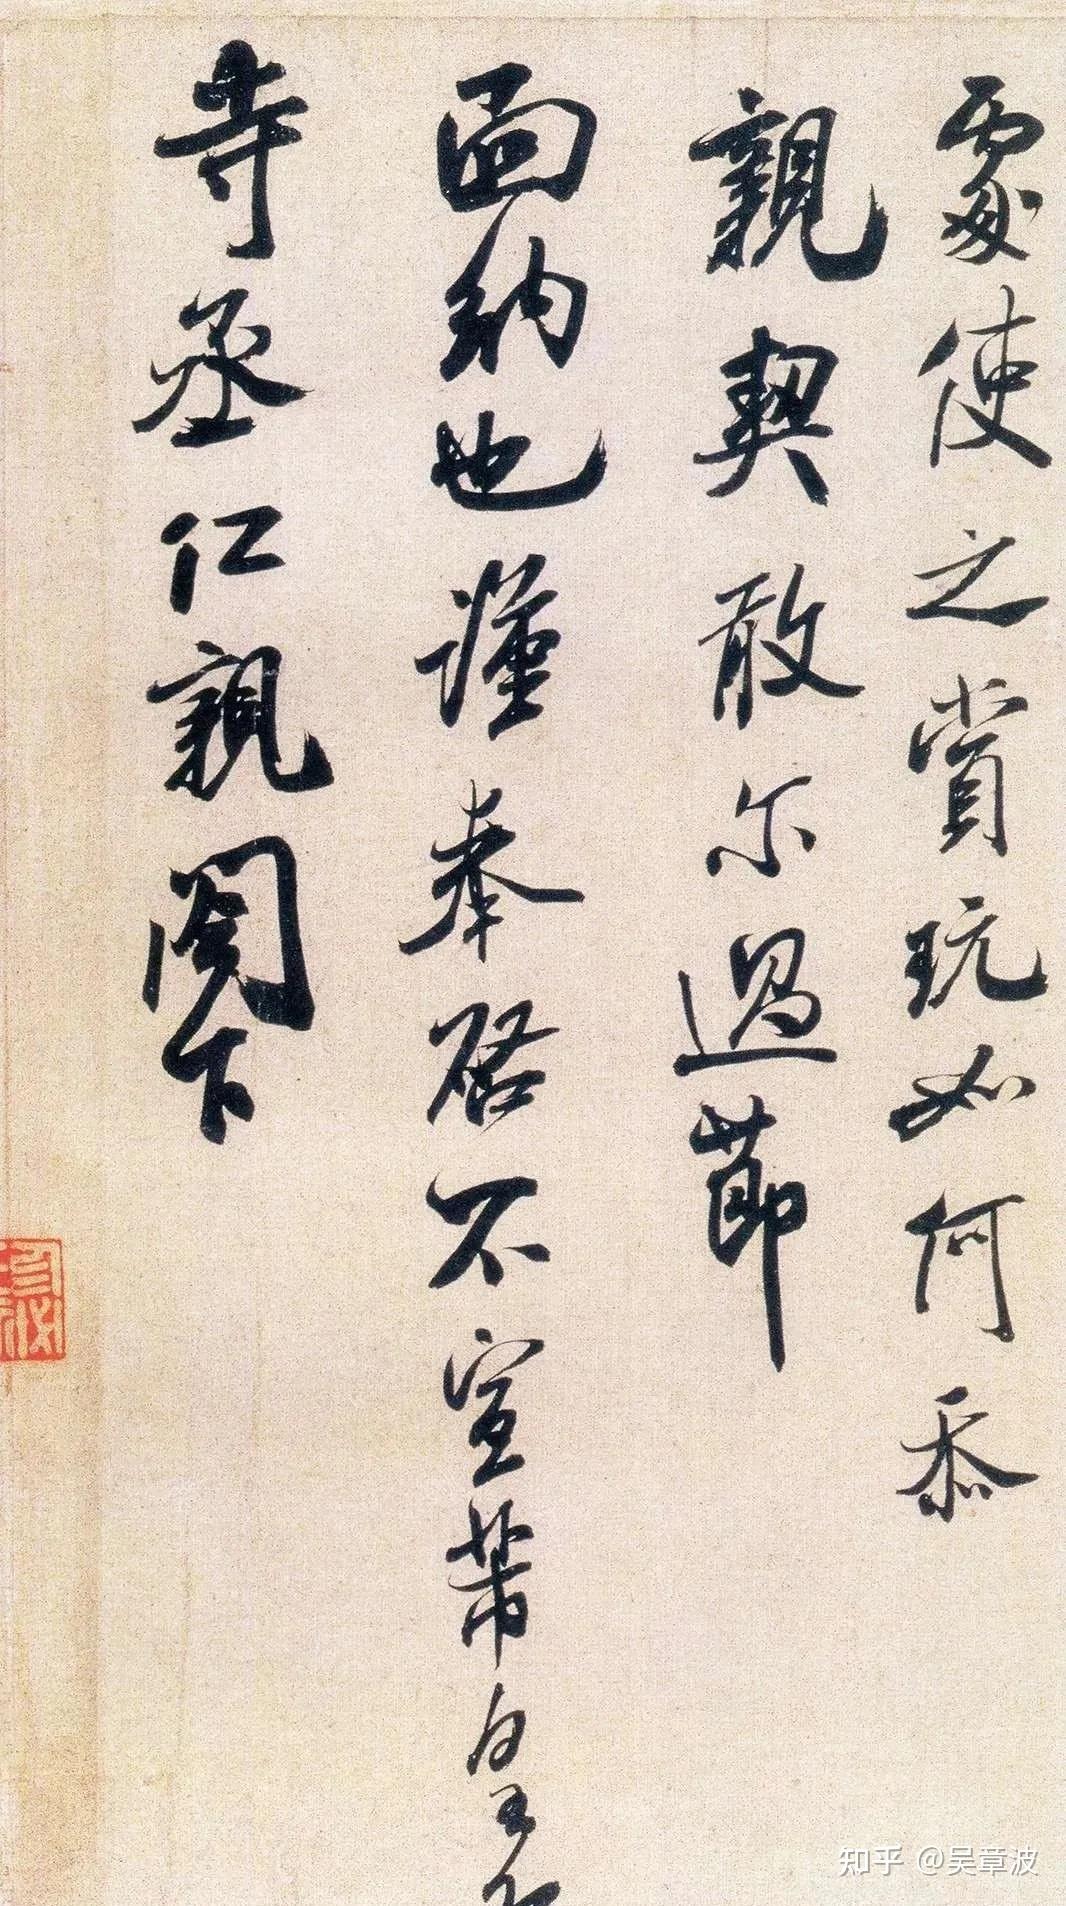 處使之賞玩如何忝
親契敢尔過莭
面納也謹奉啓不宣芾皇
寺丞仁親閣下
知乎 @吴章波